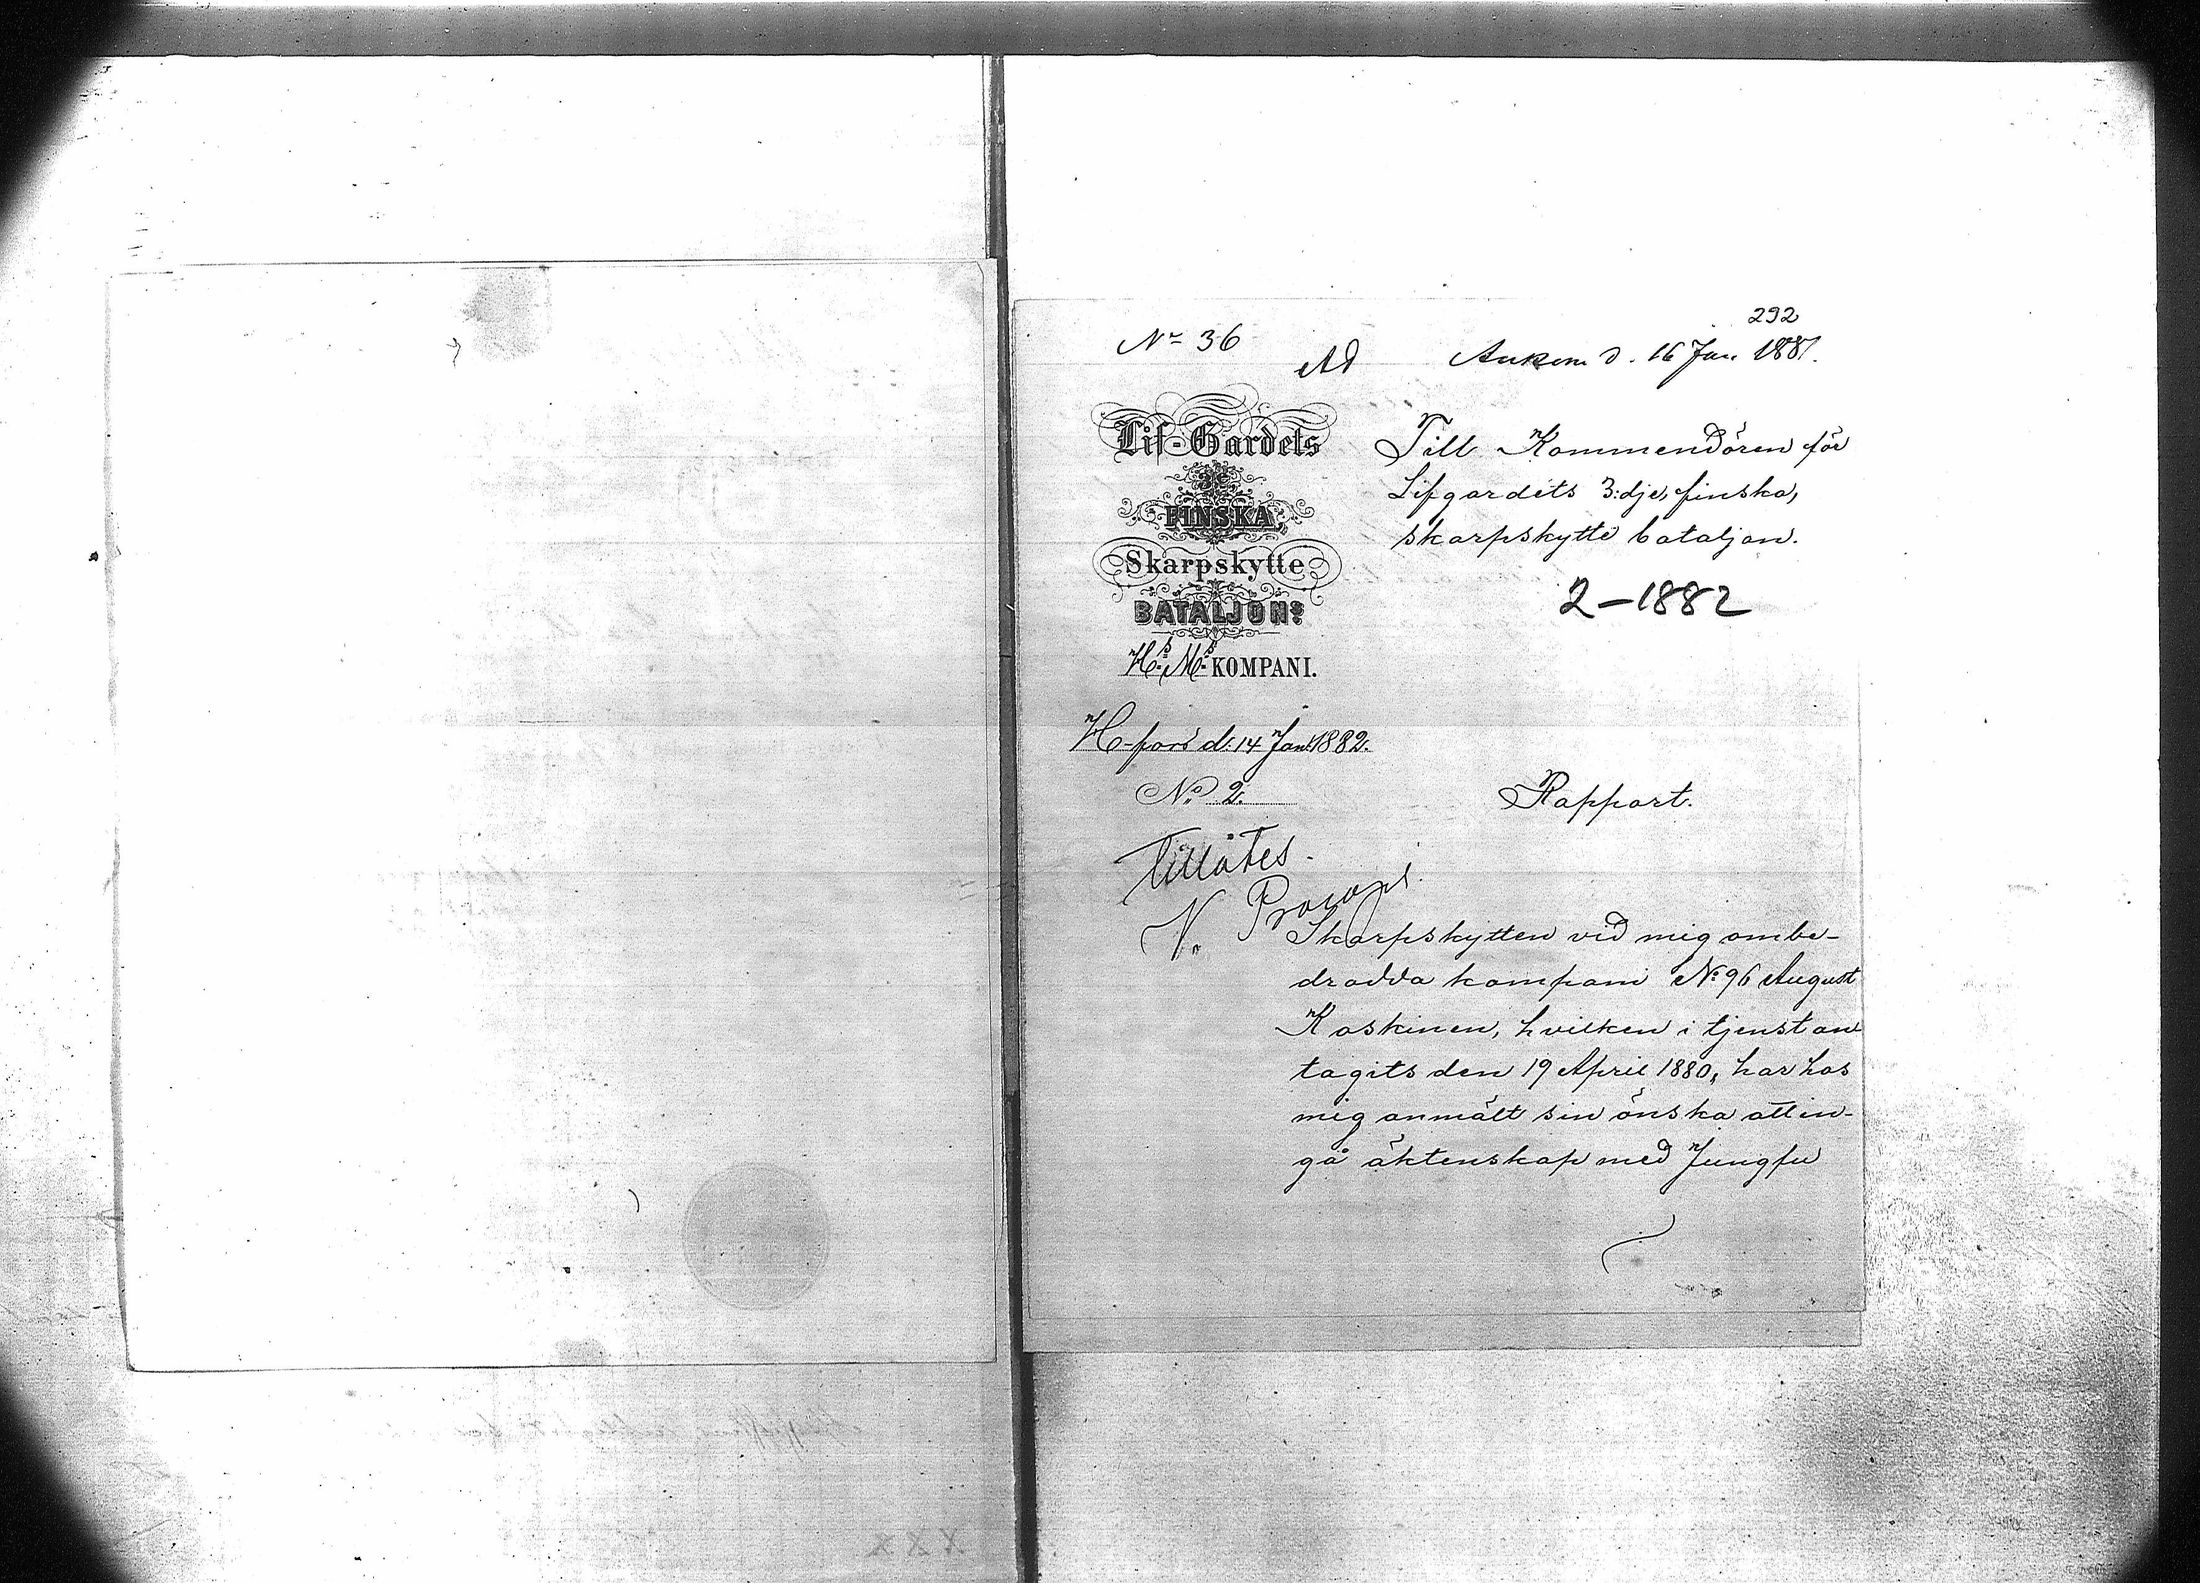 292
No 36
Ad
Ankom d. 16 Jan 1881.
Lif-Gardets
3e
FINSKA,
Skarpskytte
BATALJONs
H.s M.s KOMPANI.
Till Kommendören för
Lifgardets 3:dje, finska,
skarpskytte bataljon.
2-1882
H-fors d: 14 Jan 1882.
No 2.
Rapport.
Tillåtes.
V. Procopé.
Skarpskytten vid mig ombe-
drodda kompani No 96 August
Koskinen, hvilken i tjenst an-
tagits den 19 April 1880, har hos
mig anmält sin önska att in-
gå äktenskap med Jungfu